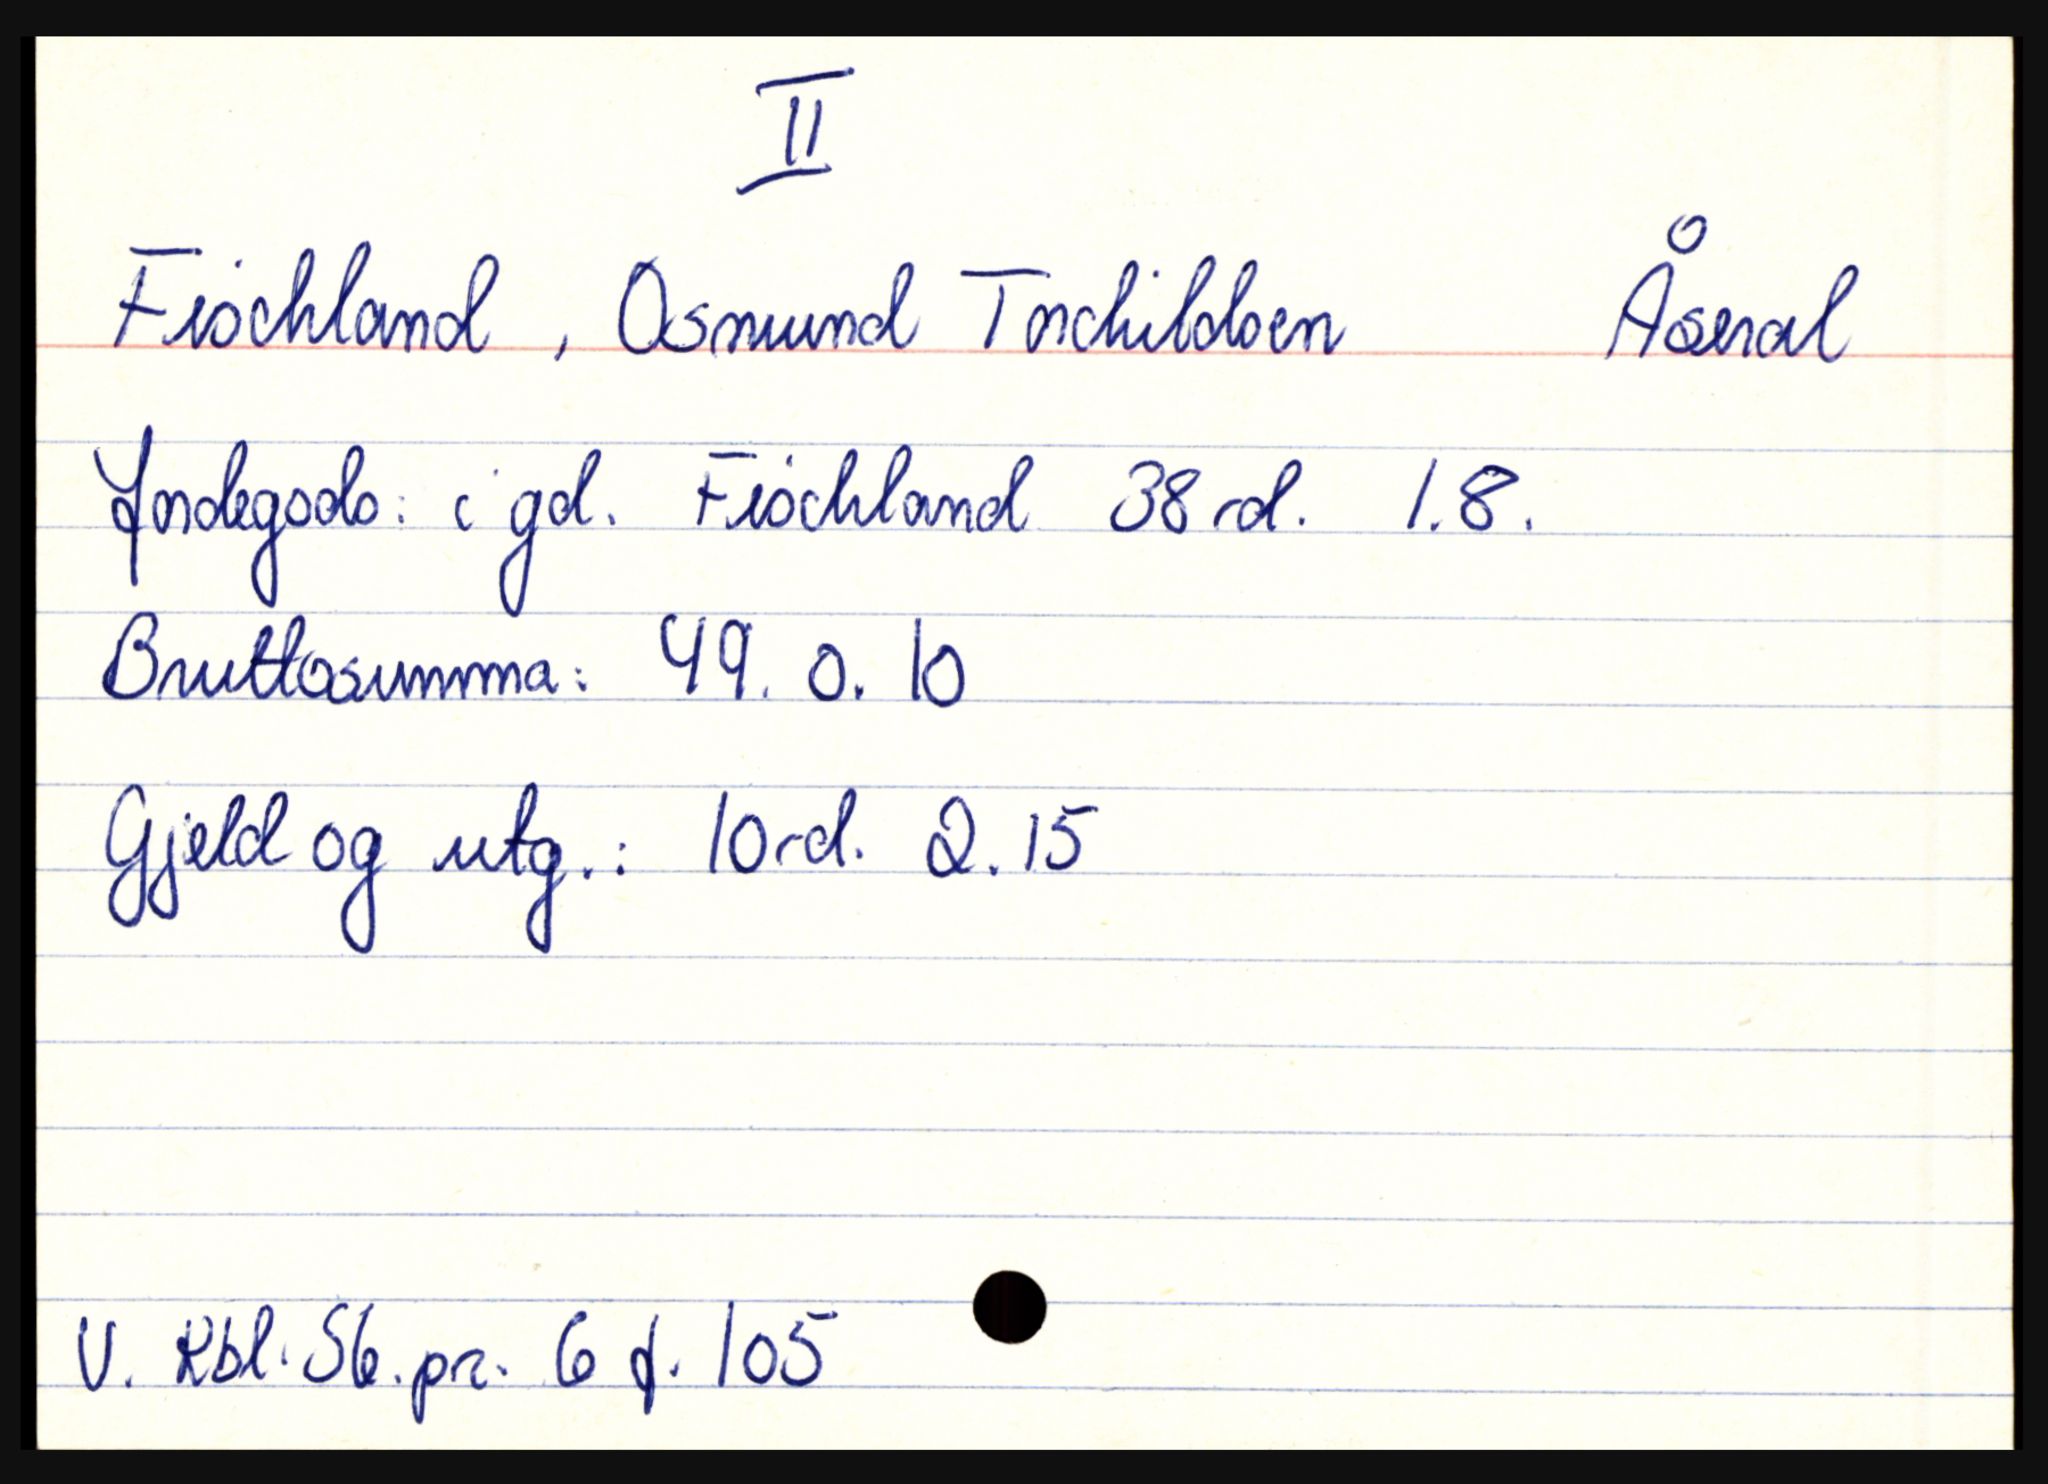 II
Fischland, Osmund Torchildsen Åseral
Jordegods: i gd. Fischland 38 rd. 1.8.
Bruttosumma: 49. 0. 10
Gjeld og utg.: 10rd. 2.15
V. Rbl. Sk. pr. 6 f. 105